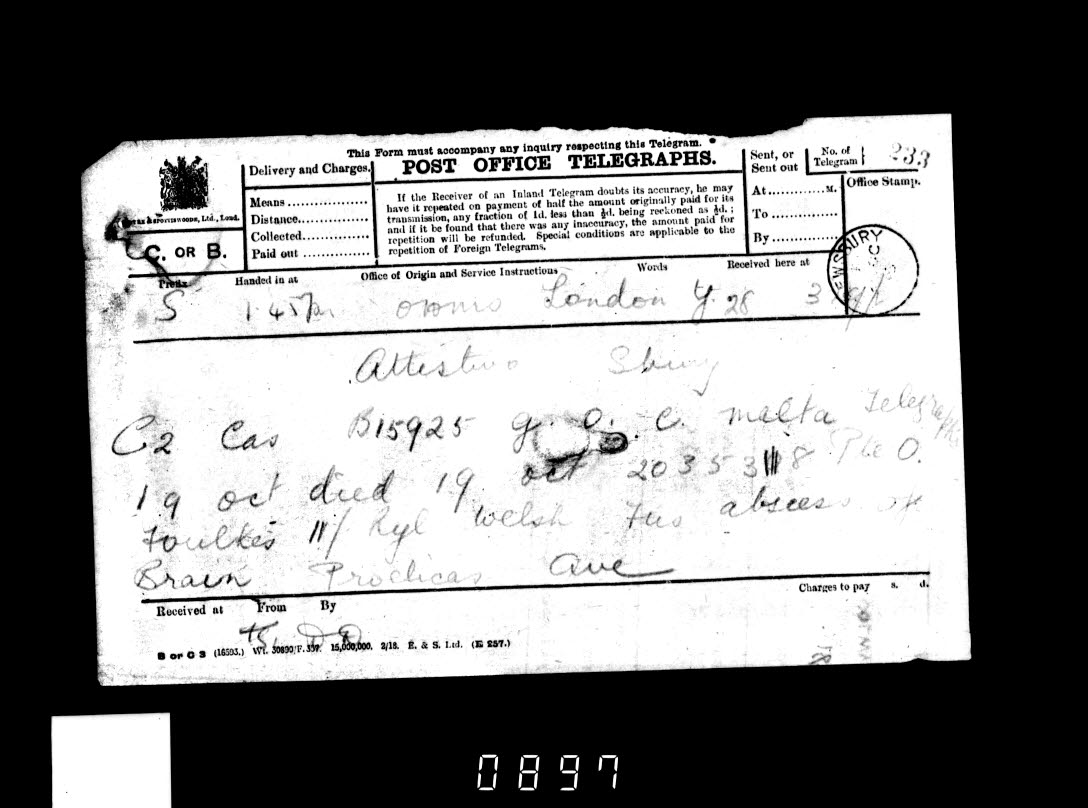 This Form must accompany any inquiry respecting this Telegram.
POST OFFICE TELEGRAPHS.
If the Receiver of an Inland Telegram doubts its accuracy, he may
have it repeated on payment of half the amount originally paid for its
transmission, any fraction of 1d. less than ½d. being reckoned as ½d. ;
and if it be found that there was any inaccuracy, the amount paid for
repetition will be refunded. Special conditions are applicable to the
repetition of Foreign Telegrams.
Delivery and Charges.
Means
Distance
Collected
Paid out
C. OR B.
Sent, or
Sent out
At M.
To
By
No. of
Telegram 233
Office Stamp.
Prefix Handed in at Office of Origin and Service Instructions Words Received here at
S 1.45 London Y. 28 3
C2 Cas B15925 G. O. C. Malta Telegraphs
19 oct died 19 oct 20353 8 Pte O.
Foulkes 11/ Ryl Welsh Fus abscess of
Brain
Received at From By Charges to pay s. d.
B or C 3 (16593.) Wt. 30890/F.337. 15,000,000. 2/18. E. & S. Ltd. (E 257.)
0897